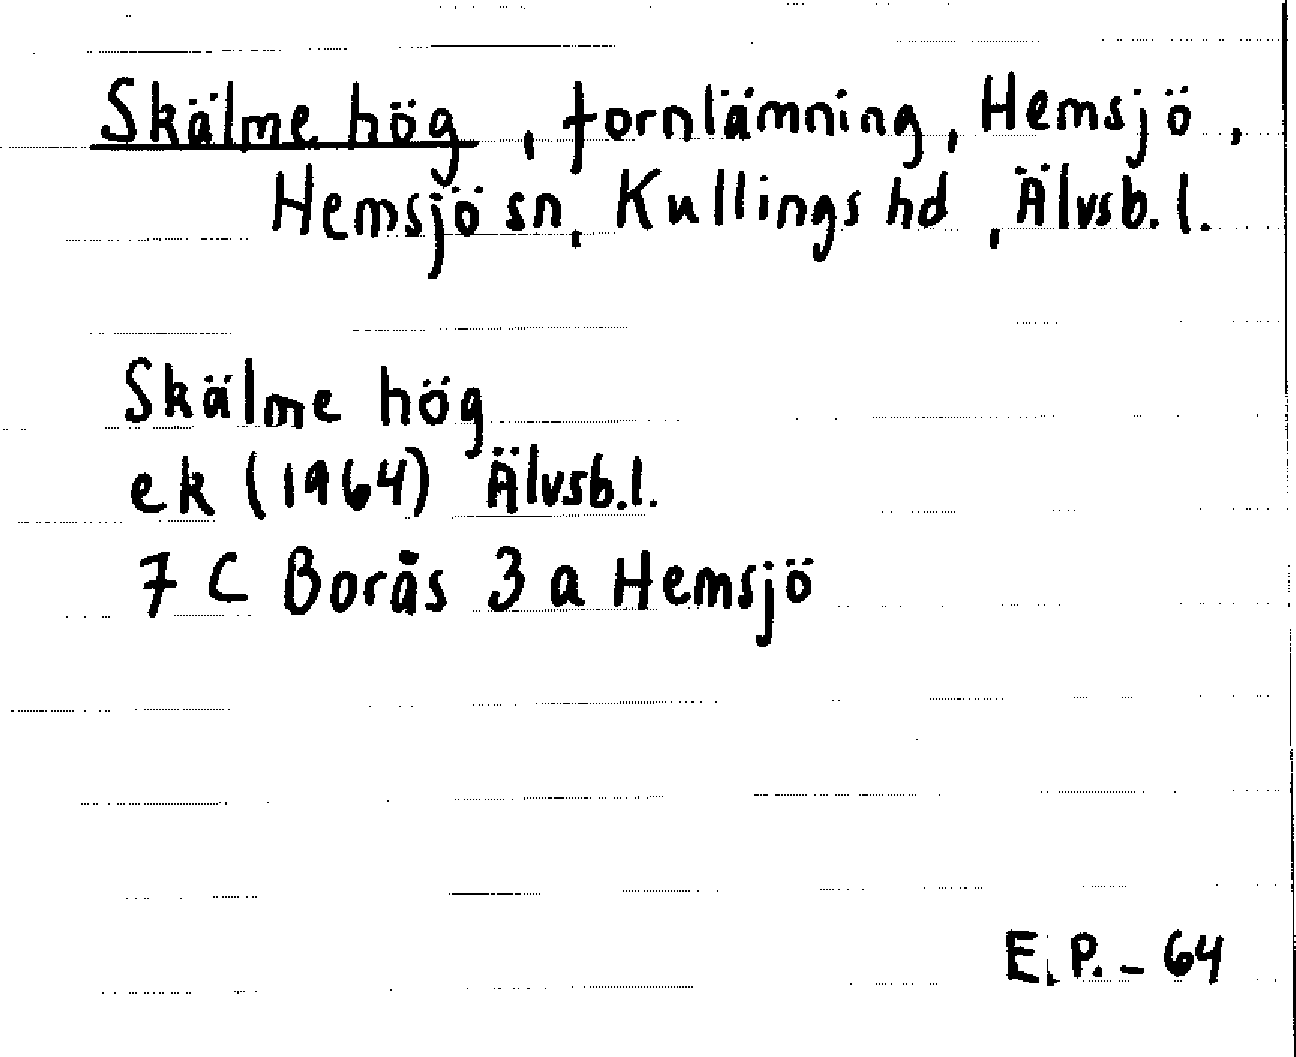 Skälme hög, fornlämning, Hemsjö,
Hemsjö sn, Kullings hd, Älvsb. l.
Skälme hög
ek (1964) Älvsb.l.
7 C Borås 3 a Hemsjö
E.P. - 64